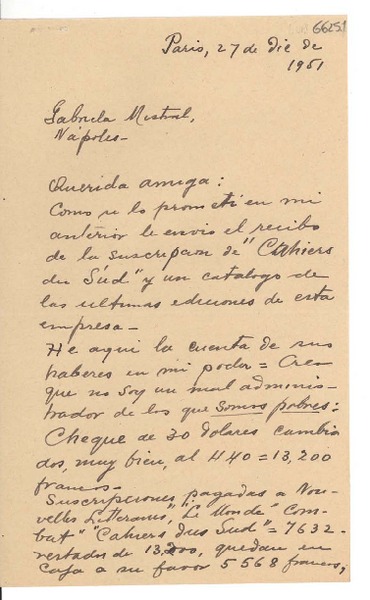 66251
Paris, 27 de dic de
1951
Gabriela Mistral,
Nápoles -
Querida amiga:
Como se lo prometí en mi
anterior le envio el recibo
de la suscripcion de "Cahiers
du Sud" y un catalogo de
las ultimas ediciones de esta
empresa -
He aqui la cuenta de sus
haberes en mi poder = Creo
que no soy un mal adminis-
trador de los que somos pobres:
Cheque de 30 dolares cambia
dos, muy bien, al 440 = 13,200
francos -
Suscripciones pagadas a Nou-
velles Litteraires", "Le Monde" Com-
bat" "Cahiers dus Sud" = 7632 -
restados de 13,200, quedan en
caja a su favor 5568 francos,